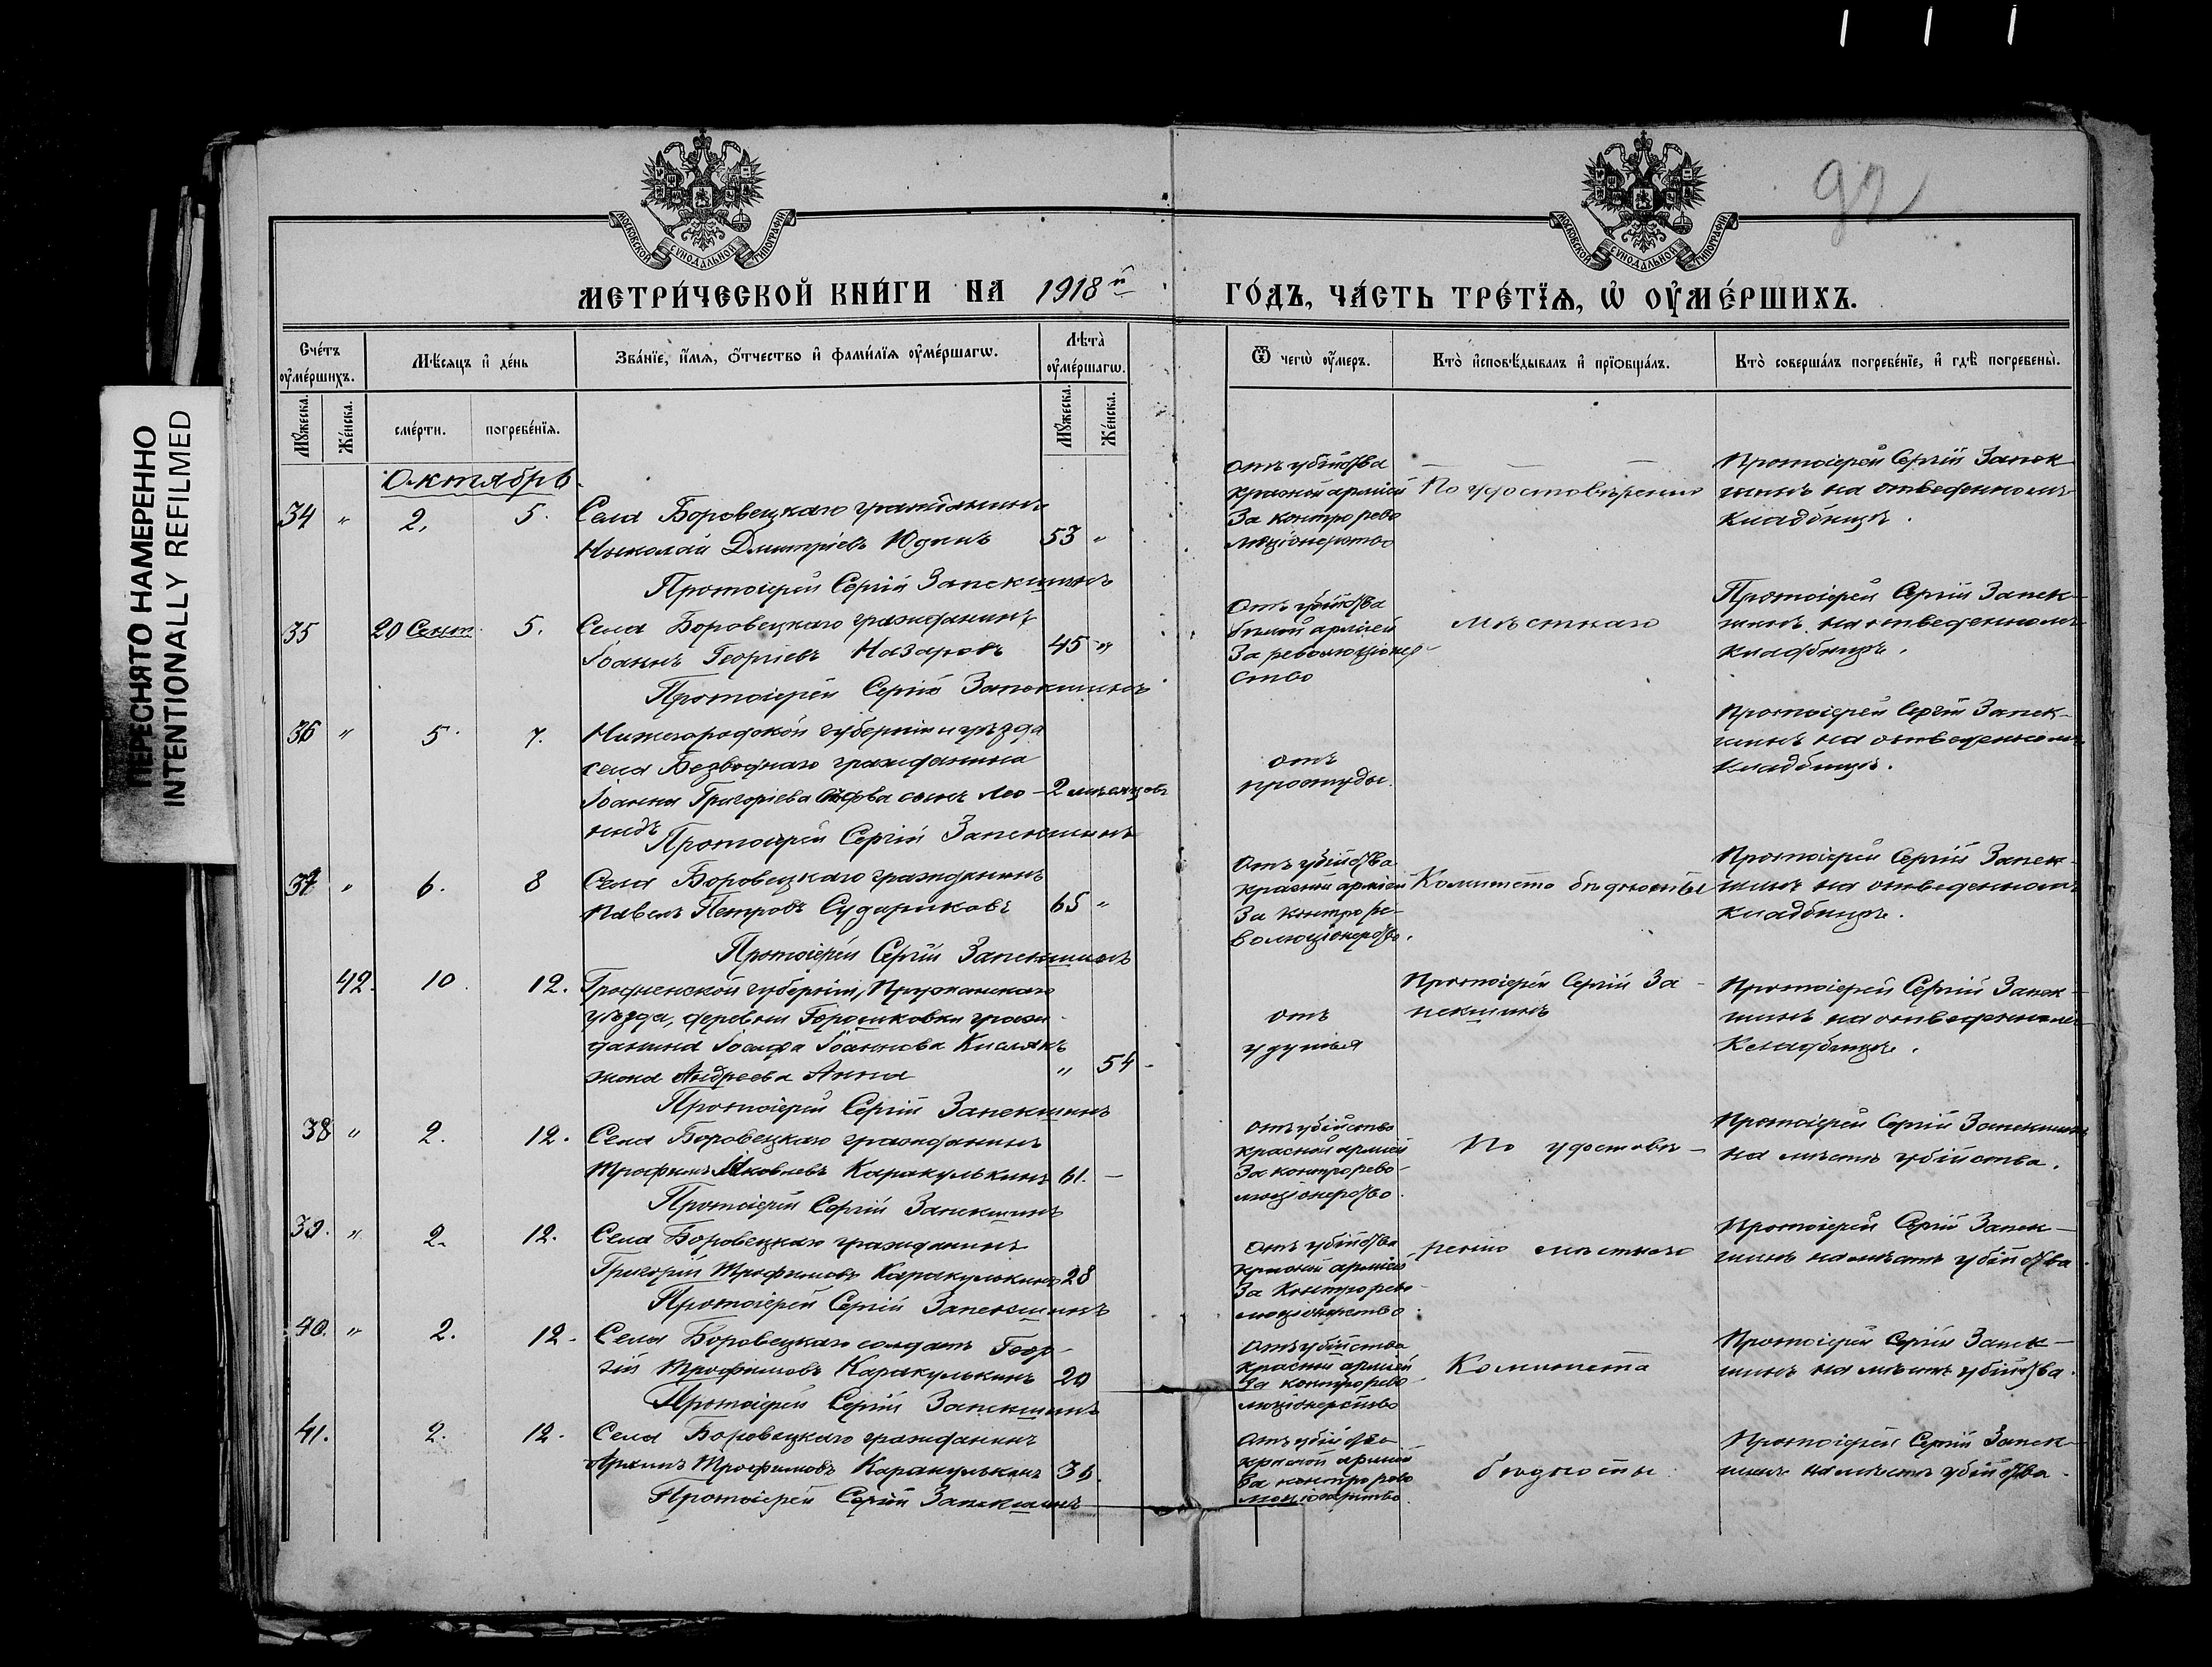 ПЕРЕСНЯТО НАМЕРЕННО
INTENTIONALLY REFILMED
92
МОСКОВСКОЙ СУНОДАЛЬНОЙ ТИПОГРАФІИ
МОСКОВСКОЙ СУНОДАЛЬНОЙ ТИПОГРАФІИ
МЕТРИ́ЧЕСКОЙ КНИ́ГИ НА 1918й ГО́ДЪ, ЧА́СТЬ ТРЕ́ТІѦ, Ѿ ОУ҆МЕ́РШИХЪ.
Сче́тъ оу҆ме́ршихъ.
Мѣ́сяцъ и҆ де́нь
Зва́нїе, и҆́мѧ, ѻ҆́тчество и҆ фами́лїѧ оу҆ме́ршагѡ.
Лѣта̀ оу҆ме́ршагѡ.
Ѿ чегѡ̀ оу҆́меръ.
Кто̀ и҆сповѣ́дывалъ и҆ прїѡбща́лъ.
Кто̀ соверша́лъ погребе́нїе, и҆ гдѣ̀ погребены̀.
Мꙋ́жеска. Же́нска.
сме́рти. погребе́нїѧ.
Мꙋ́жеска. Же́нска.
Октябрь.
34 " 2. 5. Села Боровецкаго гражданинъ
Николай Дмитріевъ Юдинъ 53 "
Протоіерей Сергій Запекшинъ
Отъ убійства
красной арміей
За контррево
люціонерство
По удостовѣренію
Протоіерей Сергій Запек
шинъ на отведенномъ
кладбищѣ.
35 20 Сент. 5. Села Боровецкаго гражданинъ
Іоаннъ Георгіевъ Назаровъ 45 "
Протоіерей Сергій Запекшинъ
Отъ убійства
бѣлой арміей
За революціонер
ство
мѣстнаго
Протоіерей Сергій Запек-
шинъ на отведенномъ
кладбищѣ.
36 " 5. 7. Нижегородской губерніи и уѣзда
села Безводнаго гражданина
Іоанна Григоріева сынъ Лео-
нидъ 2 мѣсяцовъ
Протоіерей Сергій Запекшинъ
отъ
простуды.
Протоіерей Сергій Запек-
шинъ на отведенномъ
кладбищѣ.
37 " 6. 8 Села Боровецкаго гражданинъ
Павелъ Петровъ Судариковъ 65 "
Протоіерей Сергій Запекшинъ
Отъ убійства
красной арміей
За контрре-
волюціонерство.
Комитета бѣдноты
Протоіерей Сергій Запек-
шинъ на отведенномъ
кладбищѣ.
42. 10. 12. Гродненской губерніи, Пружанскаго
уѣзда, деревни граж-
данина Іосифа Іоаннова Кислякъ
жена Андреева Анна " 54
Протоіерей Сергій Запекшинъ
отъ
удушья
Протоіерей Сергій За-
пекшинъ
Протоіерей Сергій Запек-
шинъ на отведенномъ
Кладбищѣ.
38 " 2. 12. Села Боровецкаго гражданинъ
Трофимъ Яковлевъ Каракулькинъ 61. —
Протоіерей Сергій Запекшинъ
отъ убійства
красной арміей
За контррево-
люціонерство.
По удостовѣ-
Протоіерей Сергій Запекшинъ
на мѣстѣ убійства.
39. " 2. 12. Села Боровецкаго гражданинъ
Григорій Трофимовъ Каракулькинъ 28
Протоіерей Сергій Запекшинъ
Отъ убійства
красной арміей
За контррево-
люціонерство
ренію мѣстнаго
Протоіерей Сергій Запек-
шинъ на мѣстѣ убійства.
40. " 2. 12. Села Боровецкаго солдатъ Геор-
гій Трофимовъ Каракулькинъ 20
Протоіерей Сергій Запекшинъ
Отъ убійства
красной арміей
За контррево-
люціонерство
Комитета
Протоіерей Сергій Запек-
шинъ на мѣстѣ убійства.
41. 2. 12. Села Боровецкаго гражданинъ
Трофимовъ Каракулькинъ
Протоіерей Сергій Запекшинъ
Отъ убійства
красной арміей
За контррево
люціонерство.
бѣдноты
Протоіерей Сергій Запек-
шинъ на мѣстѣ убійства.